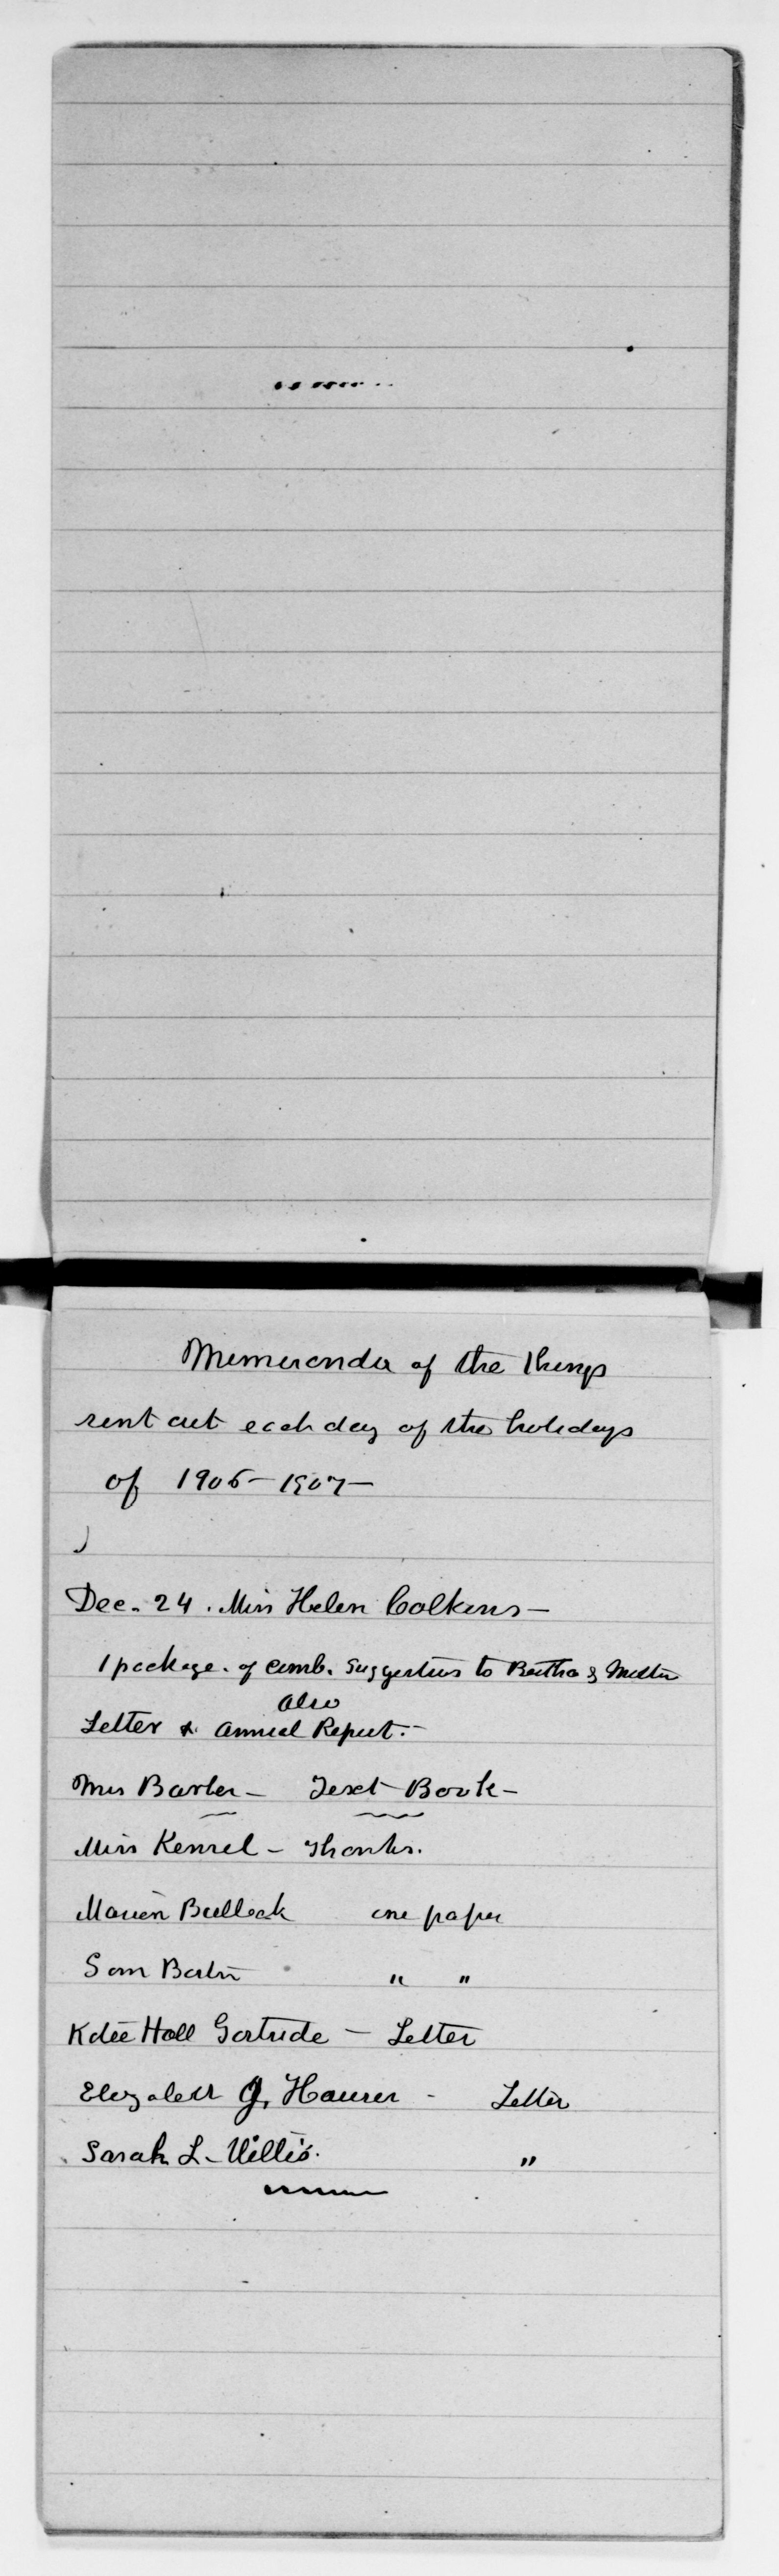 Memoranda of the things
sent out each day of the holidays
of 1906-1907-
Dec. 24. Miss Helen Calkins-
1 package. of Comb. Suggestions to Bertha & Mother
also
Letter & Annual Report.-
Mrs Barber- Text-Book-
Miss Kensel- Thanks.
Marion Bullock one paper
Sam " "
Katie Hall Gertrude - Letter
Elizabeth J. Hauser - Letter
Sarah L. Willis. "